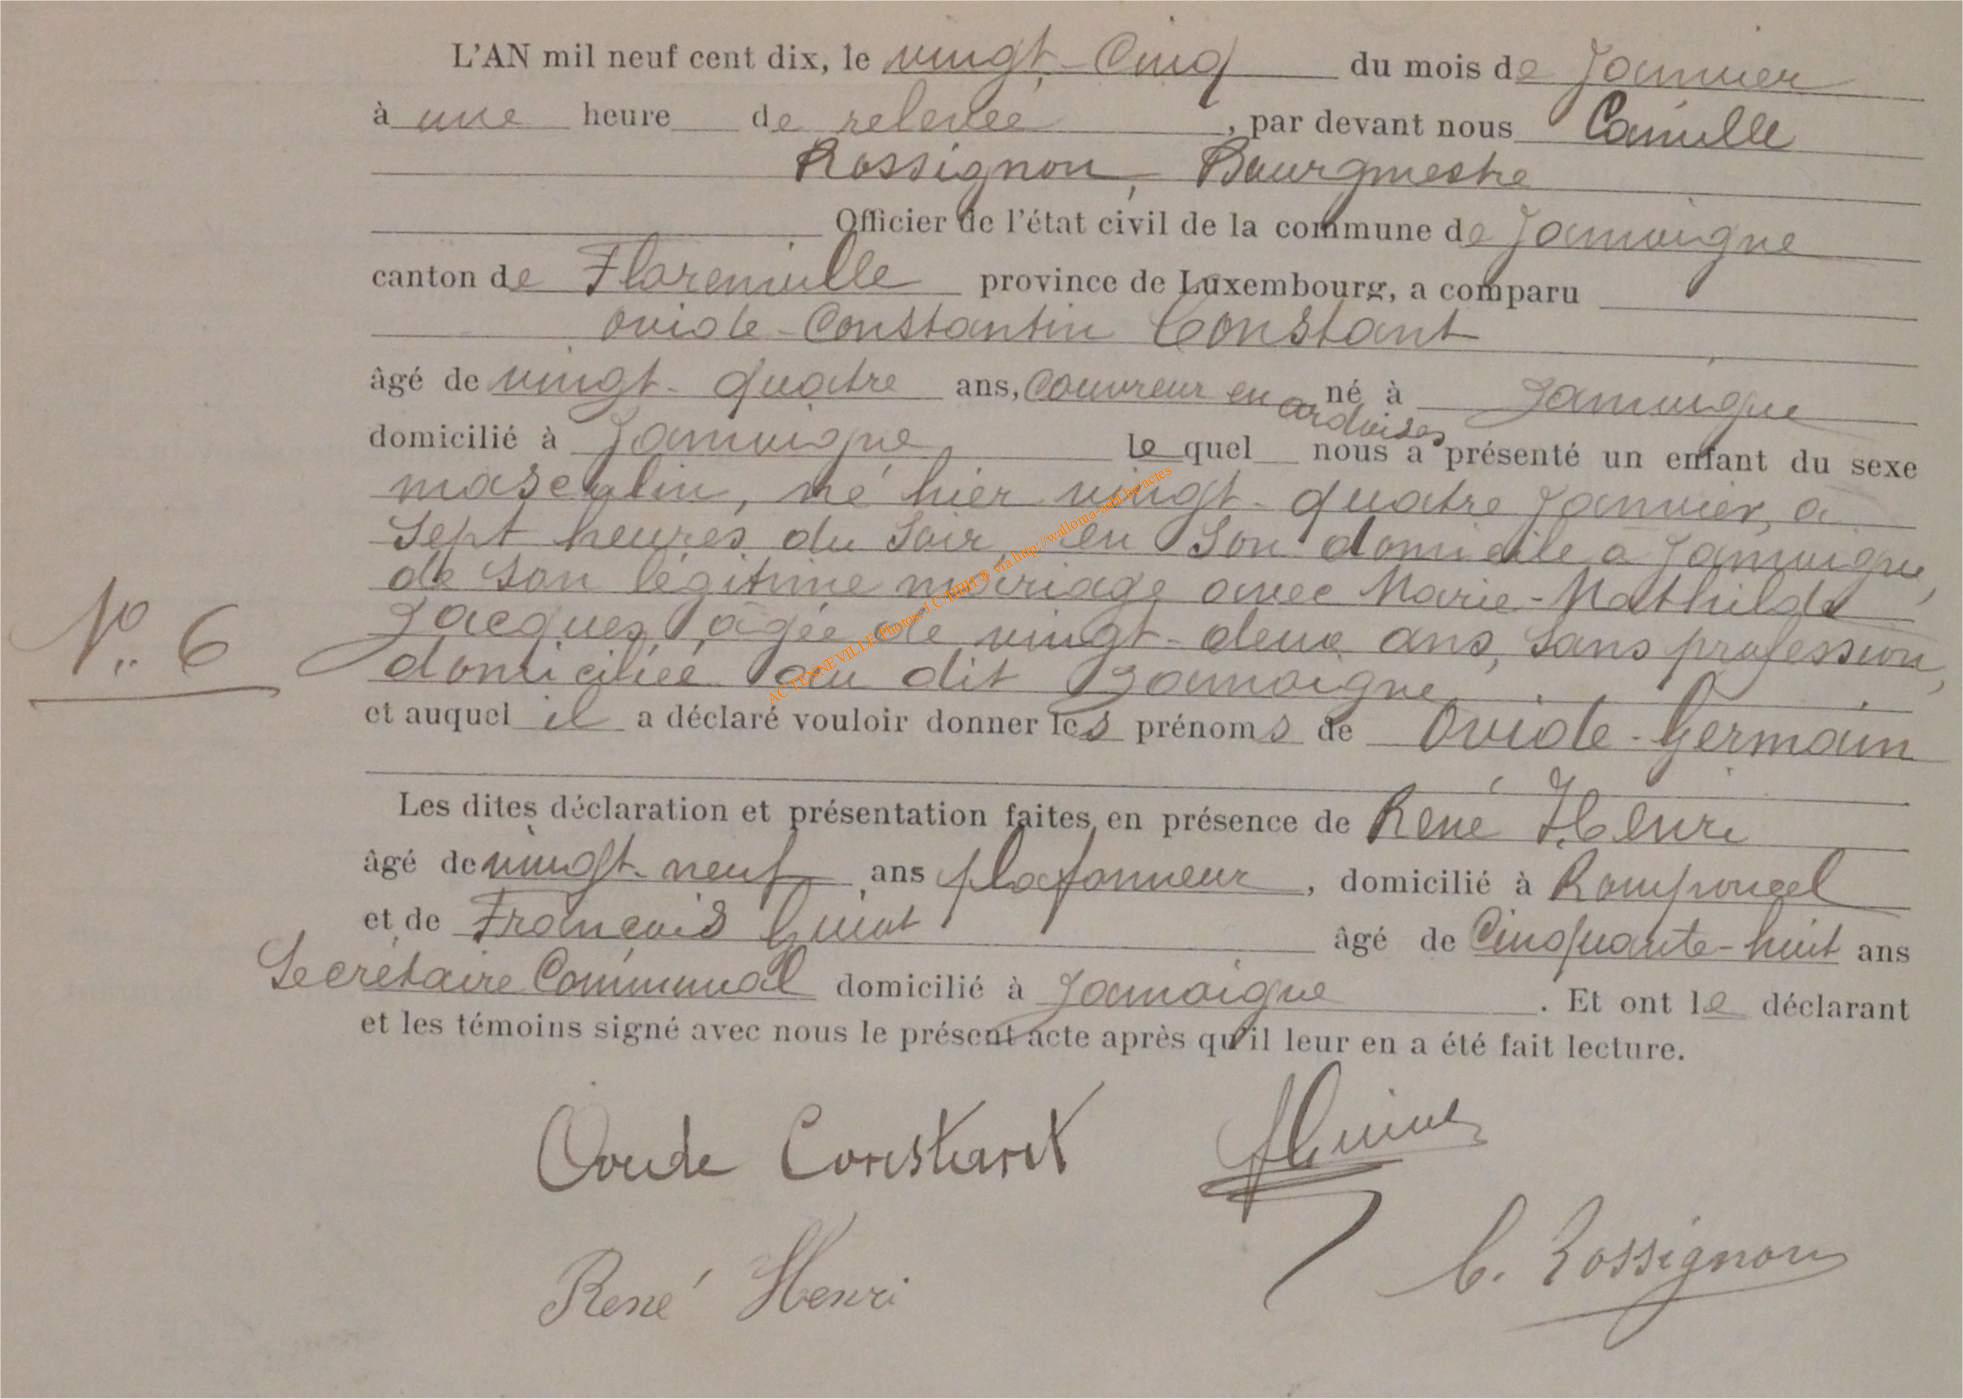 L'AN mil neuf cent dix, le vingt-Cinq du mois de Janvier
à une heure de relevée, par devant nous Camille
Rossignon, Bourgmestre
Officier de l'état civil de la commune de Jamoigne
canton de Florenville province de Luxembourg, a comparu
Ovide-Constantin Constant
âgé de vingt-quatre ans, Couvreur en ardoises né à Jamoigne
domicilié à Jamoigne le quel nous a présenté un enfant du sexe
masculin, né hier vingt-quatre Janvier, à
Sept heures du Soir, en Son domicile à Jamoigne,
de Son légitime mariage avec Marie-Mathilde
Jacques, âgée de vingt-deux ans, Sans profession,
N° 6
domiciliée au dit Jamoigne
et auquel il a déclaré vouloir donner les prénoms de Ovide-Germain
Les dites déclaration et présentation faites en présence de René Henri
âgé de vingt-neuf ans plafonneur, domicilié à
et de François Guiot âgé de Cinquante-huit ans
Secrétaire Communal domicilié à Jamoigne. Et ont le déclarant
et les témoins signé avec nous le présent acte après qu'il leur en a été fait lecture.
Ovide Constant
René Henri
C. Rossignon